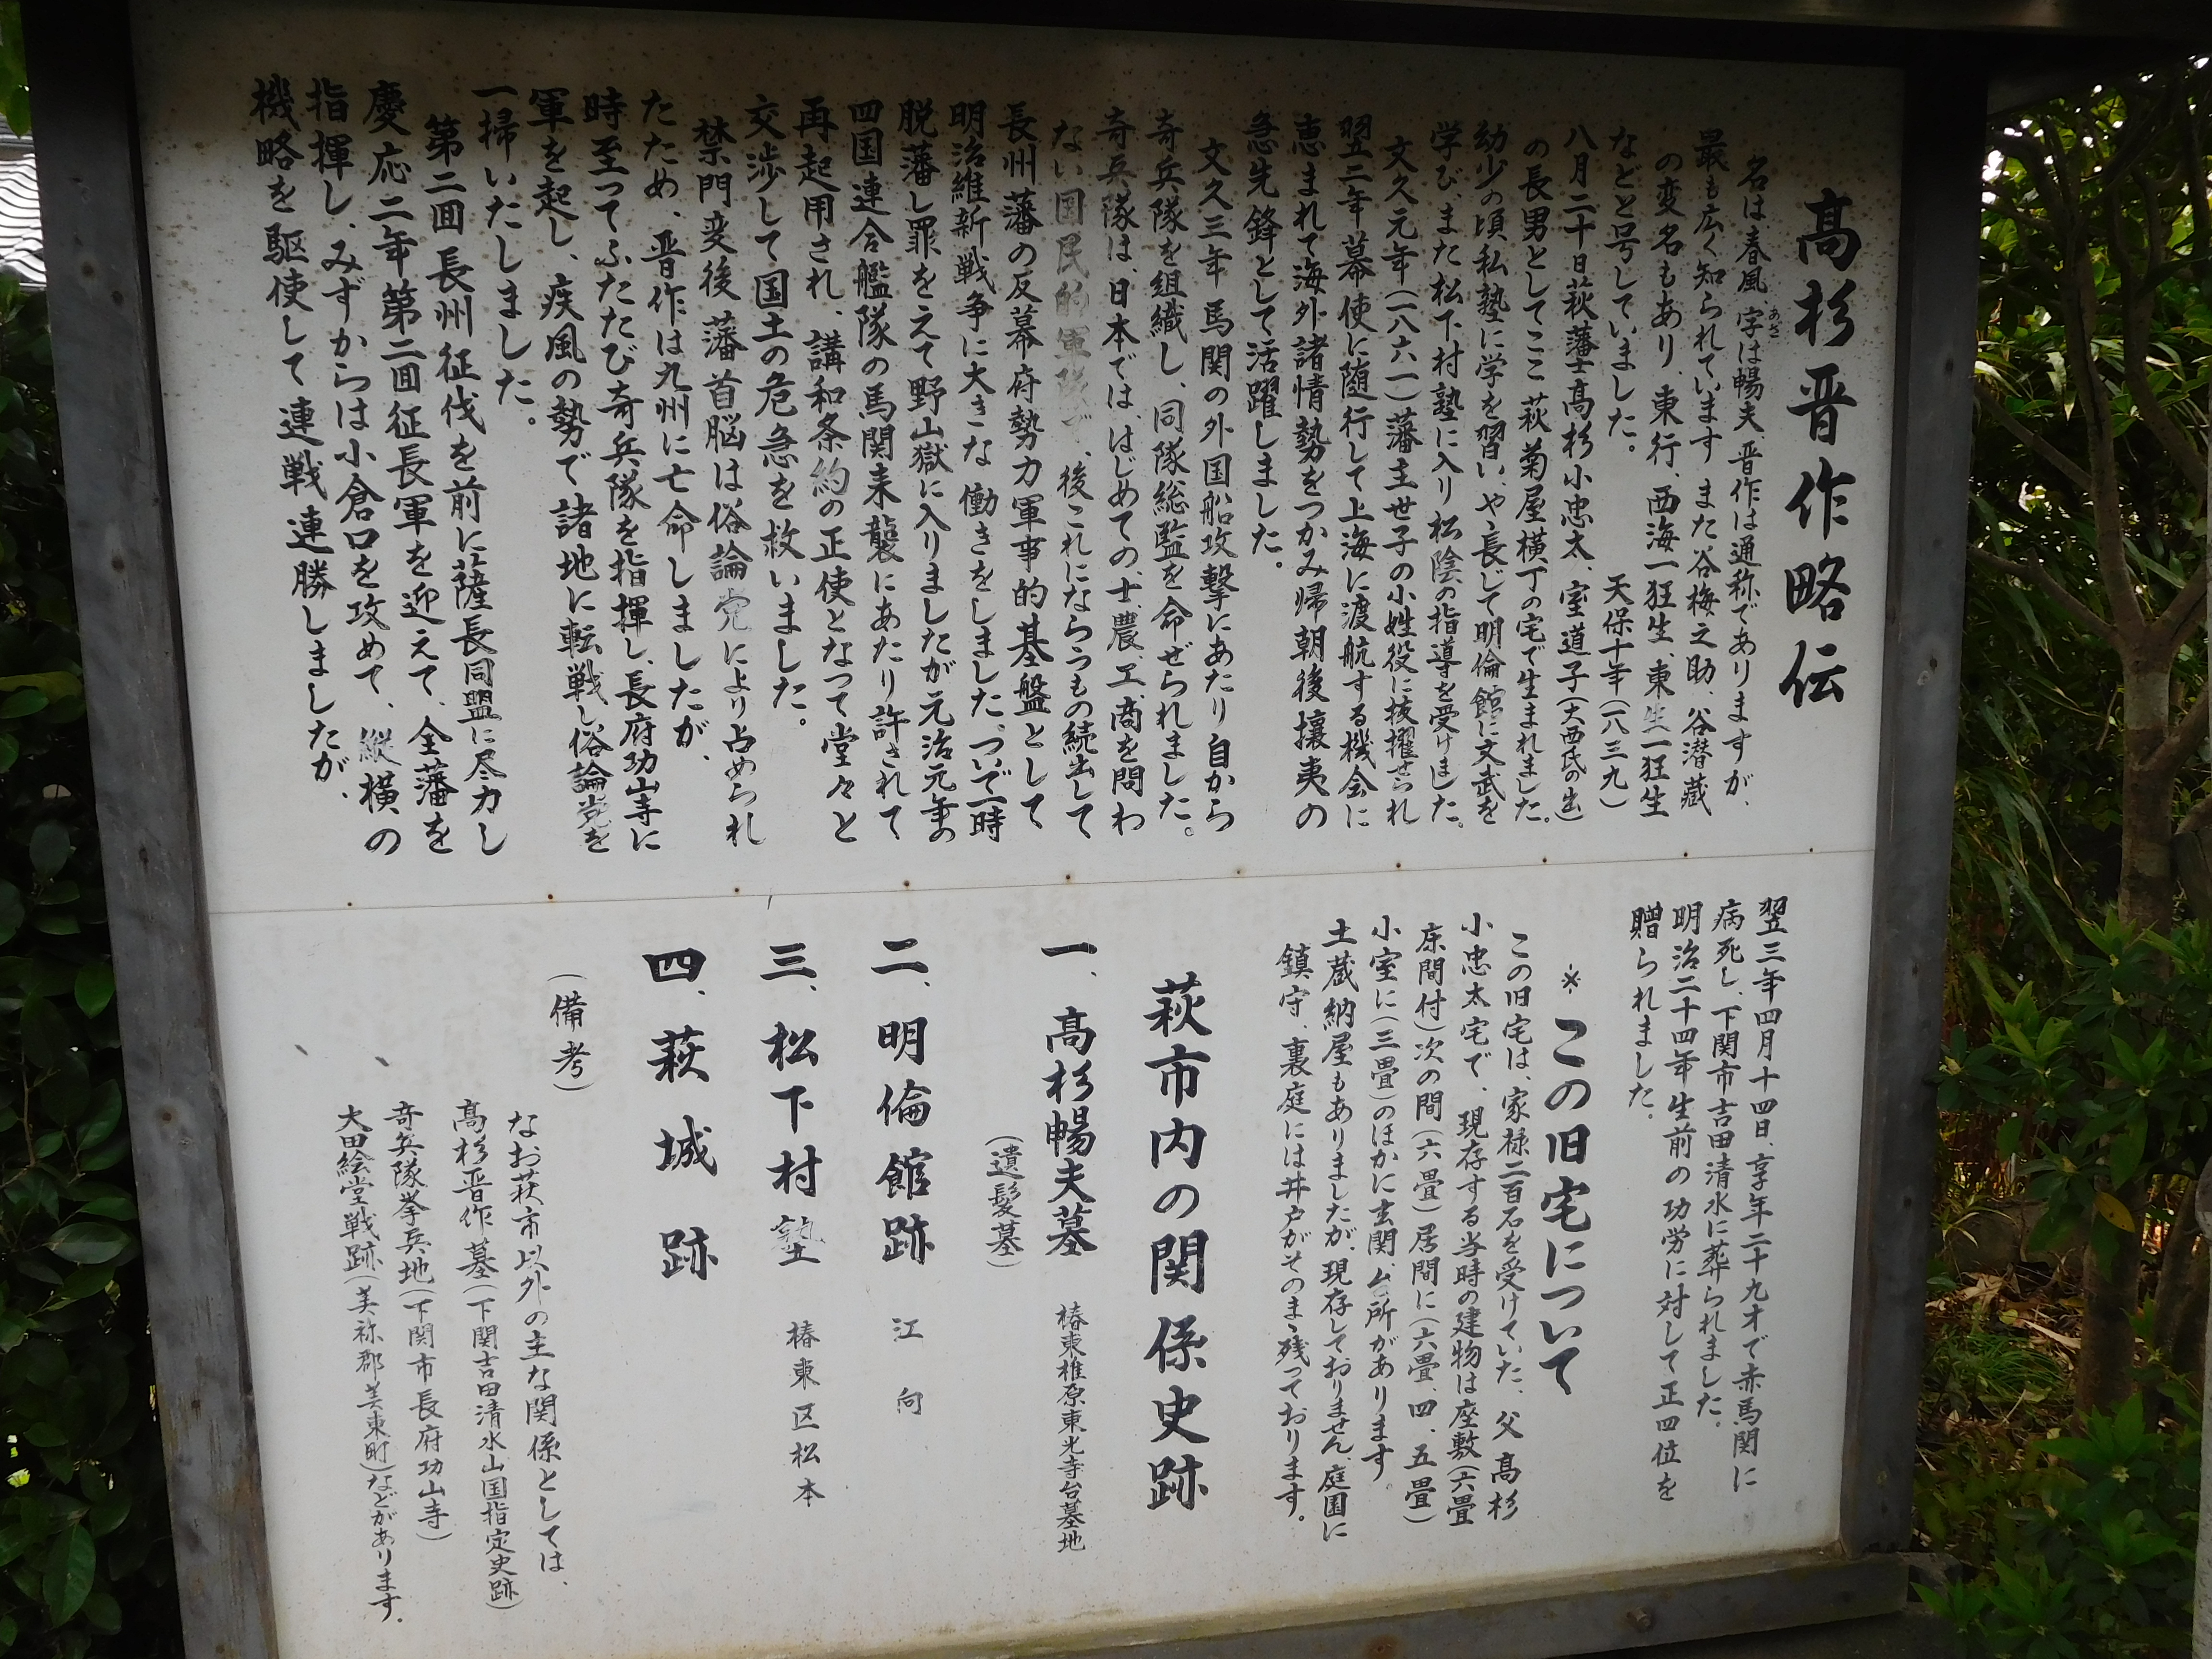 高杉晋作略伝
名は、春風 字は暢夫、晋作は通称でありますが、
あざ
最も広く知られています また谷梅之助、谷潜蔵
の変名もあり、東行、西海一狂生、東生一狂生
などと号していました。
天保十年(一八三九)
八月二十日萩藩士高杉小忠太、室道子(大西氏の出)
の長男としてここ 萩菊屋横丁の宅で生まれました。
幼少の頃私塾に学を習い、やゝ長じて明倫館に文武を
学びまた松下村塾に入り 松陰の指導を受けました。
文久元年(一八六一)藩主世子の小姓役に抜擢され
翌二年幕使に随行して上海に渡航する機会に
恵まれて海外諸情勢をつかみ帰朝後攘夷の
急先鋒として活躍しました。
文久三年 馬関の外国船攻撃にあたり自から
奇兵隊を組織し、同隊総監を命ぜられました。
奇兵隊は、日本では、はじめての、士、農、工、商を問わ
ない国民的軍隊で、後これにならうもの続出して
長州藩の反幕府勢力軍事的基盤として
明治維新戦争に大きな働きをしました、ついで一時
脱藩し罪をえて野山獄に入りましたが元治元年の
四国連合艦隊の馬関来襲にあたり許されて
再起用され、講和条約の正使となって堂々と
交渉して国土の危急を救いました。
禁門変後 藩首脳は俗論党により占められ
たため、晋作は九州に亡命しましたが、
時至ってふたたび奇兵隊を指揮し、長府功山寺に
軍を起し、疾風の勢で諸地に転戦し俗論党を
一掃いたしました。
第二回長州征伐を前に薩長同盟に尽力し
慶応二年第二回征長軍を迎えて、全藩を
指揮し、みずからは小倉口を攻めて、縦横の
機略を駆使して連戦連勝しましたが、
翌三年四月十四日、享年二十九才で赤馬関に
病死し、下関市吉田清水に葬られました。
明治二十四年生前の功労に対して正四位を
贈られました。
＊この旧宅について
この旧宅は、家禄二百石を受けていた、父高杉
小忠太宅で、現存する当時の建物は座敷(六畳
床間付)次の間(六畳)居間に(六畳、四、五畳)
小室に(三畳)のほかに玄関、台所があります。
土蔵納屋もありましたが、現存しておりません、庭園に
鎮守、裏庭には井戸がそのまゝ残っております。
萩市内の関係史跡
一、高杉暢夫墓 椿東椎原東光寺台墓地
(遺髪墓)
二、明倫館跡 江向
三、松下村塾 椿東区松本
四、萩城跡
(備考)
なお萩市以外の主な関係としては、
高杉晋作墓(下関吉田清水山国指定史跡)
奇兵隊挙兵地(下関市長府功山寺)
大田絵堂戦跡(美祢郡美東町)などがあります。